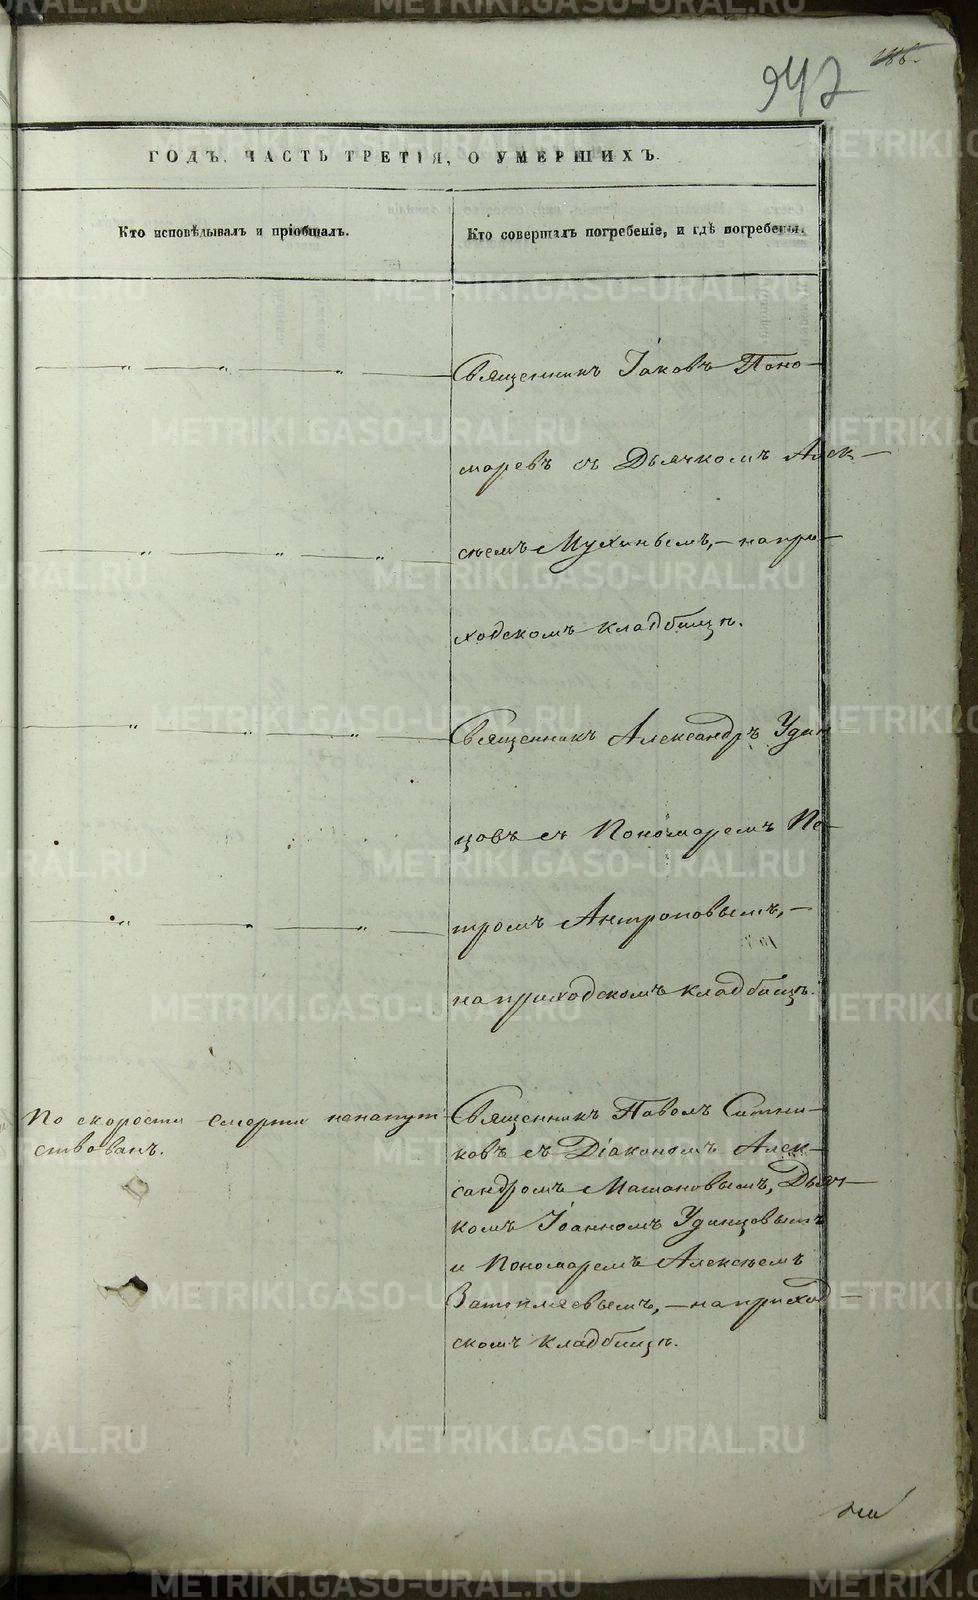 942
186.
ГОДЪ, ЧАСТЬ ТРЕТІЯ, О УМЕРШИХЪ.
Кто исповѣдывалъ и пріобщалъ.
Кто совершалъ погребеніе, и гдѣ погребены.
Священникъ Іаковъ Поно-
маревъ съ Дьячкомъ Алек-
сѣемъ Мухинымъ, - на при-
ходскомъ кладбищѣ.
Священникъ Александръ Удин
цовъ съ Пономаремъ Пе-
тромъ Антроповымъ, -
на приходскомъ кладбищѣ.
По скорости смерти ненапут-
ствованъ.
Священникъ Павелъ Ситни-
ковъ съ Діакономъ Алек-
сандромъ Мамановымъ, Дьяч-
комъ Іоанномъ Удинцовымъ
и Пономаремъ Алексѣемъ
Затопляевымъ, - на приход-
скомъ кладбищѣ.
METRIKI.GASO-URAL.RU